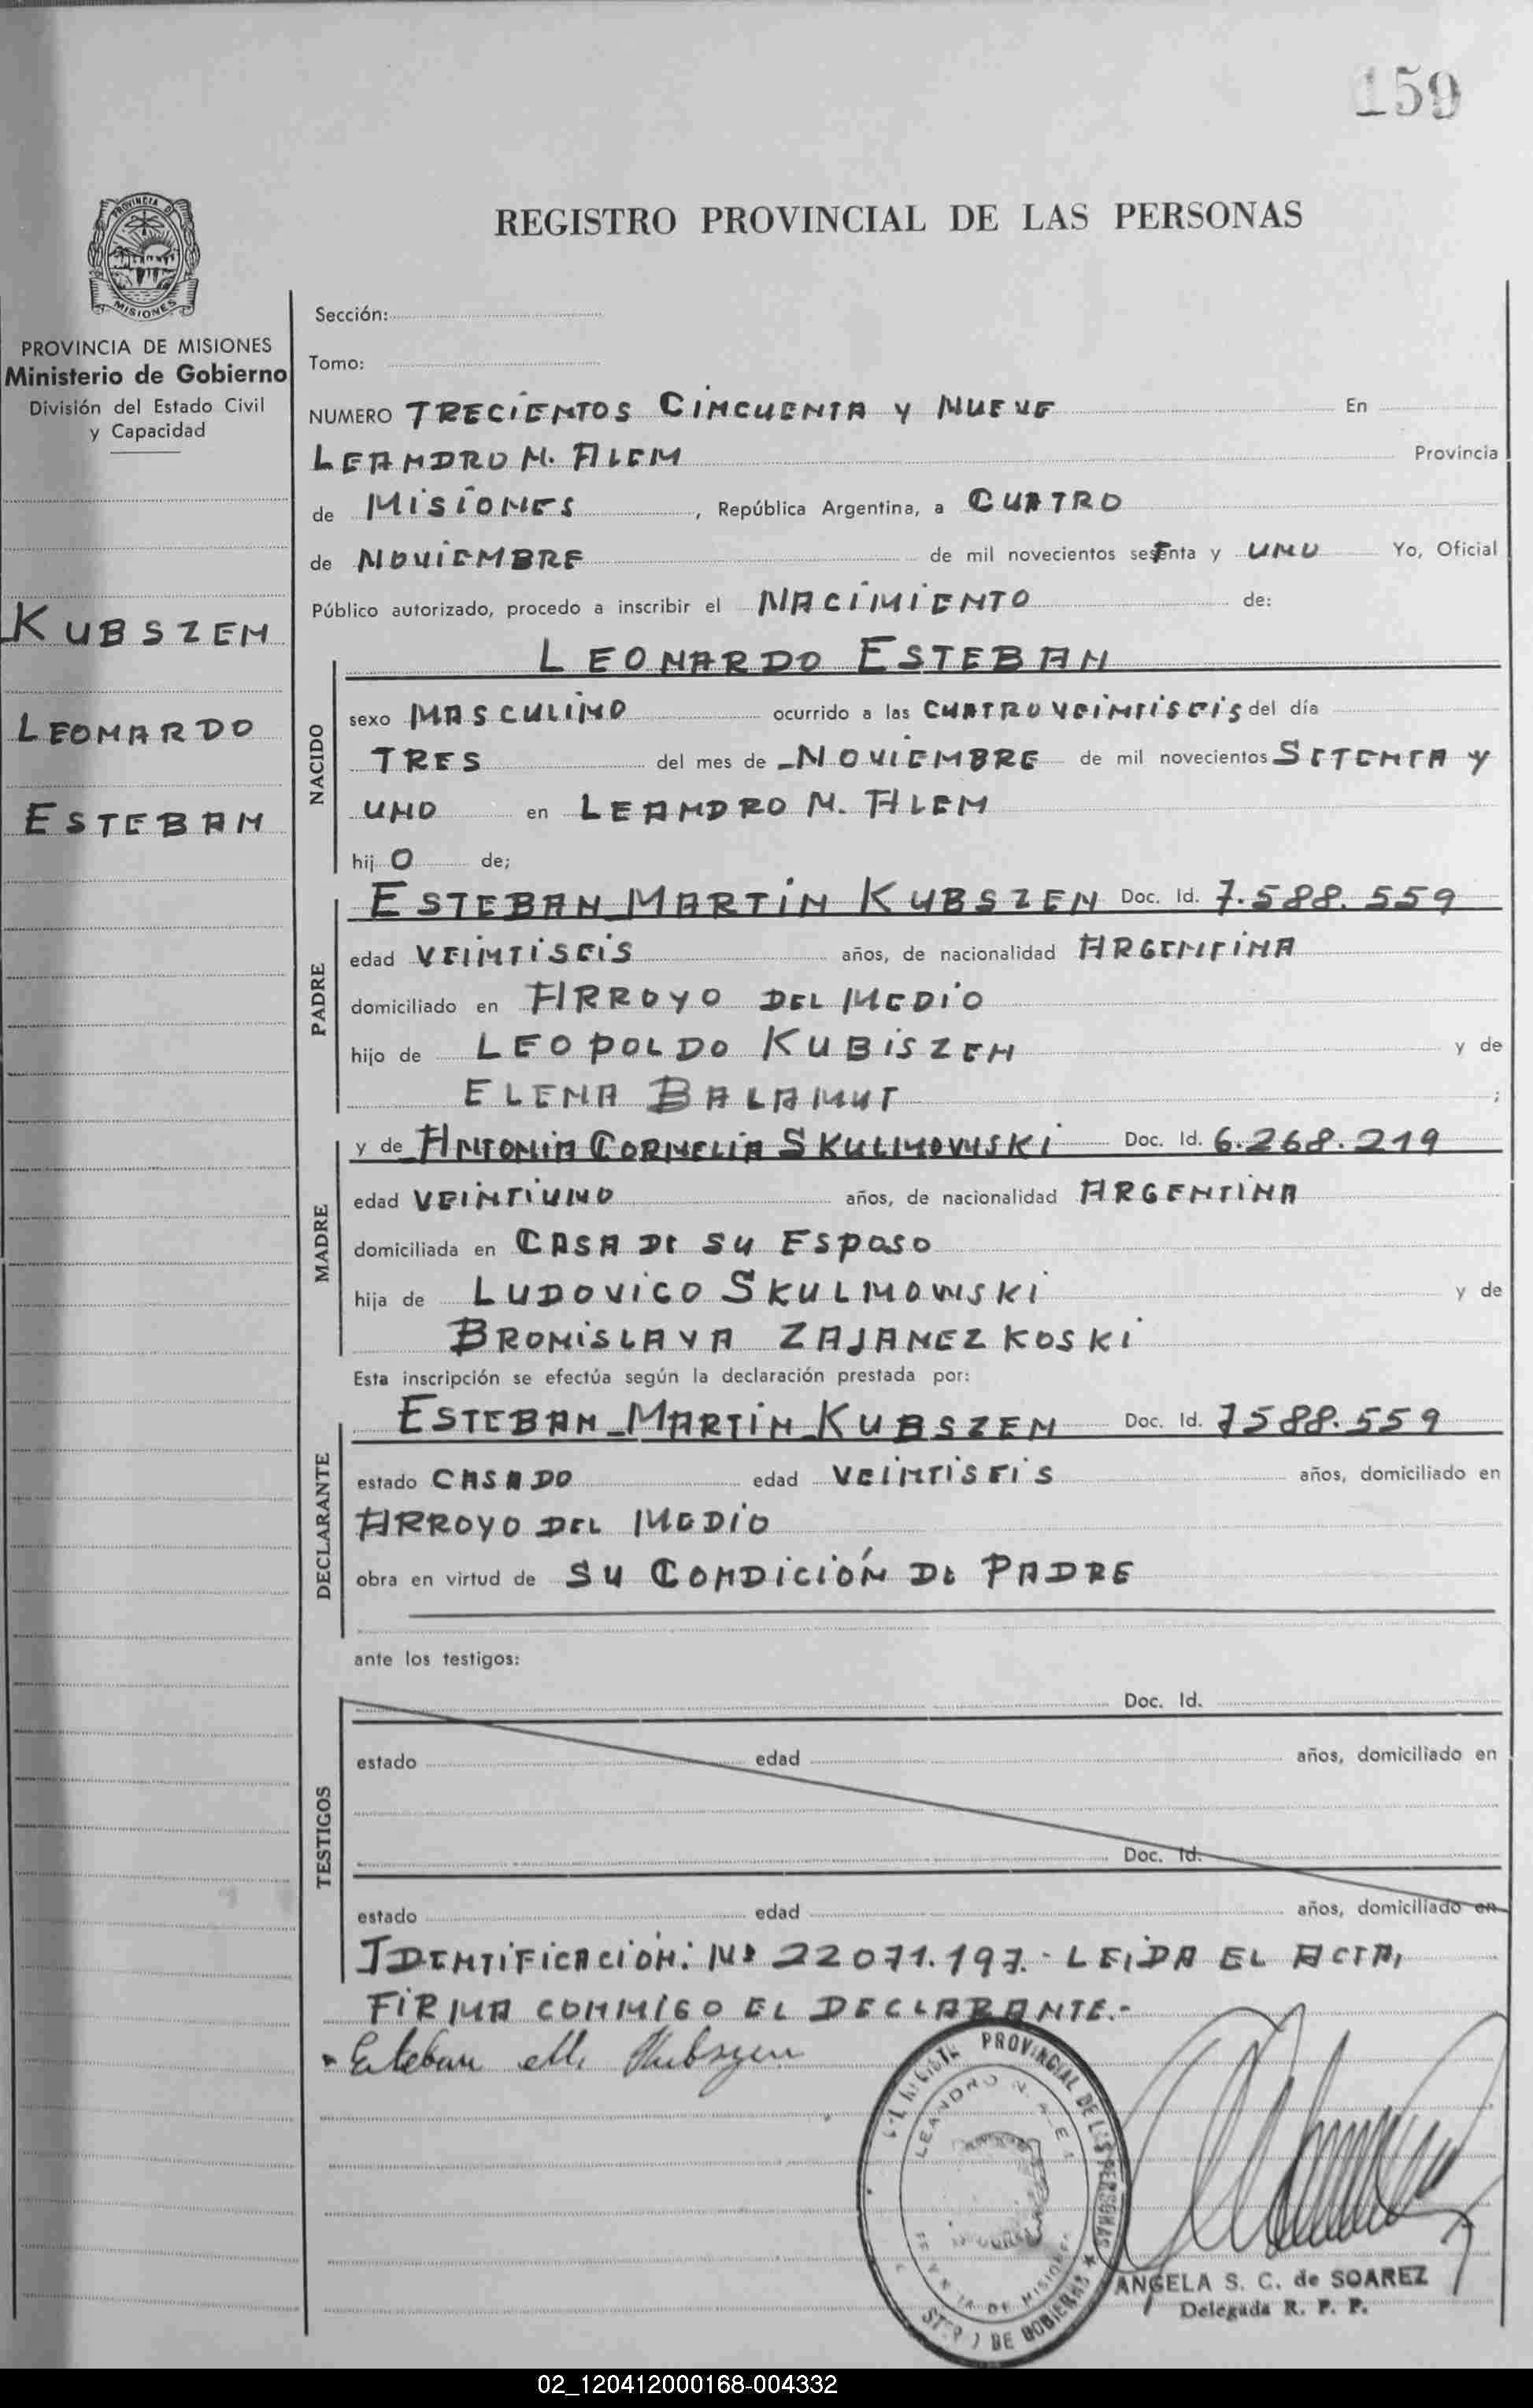 159
REGISTRO PROVINCIAL DE LAS PERSONAS
PROVINCIA DE MISIONES
PROVINCIA DE MISIONES
Ministerio de Gobierno
División del Estado Civil
y Capacidad
KUBSZEN
LEONARDO
ESTEBAN
Sección:
Tomo:
NUMERO TRECIENTOS CINCUENTA Y NUEVE En
LEANDRO N. ALEM Provincia
de MISIONES, República Argentina, a CUATRO
de NOVIEMBRE de mil novecientos setenta y UNO Yo, Oficial
Público autorizado, procedo a inscribir el NACIMIENTO de:
LEONARDO ESTEBAN
NACIDO
sexo MASCULINO ocurrido a las CUATRO VEINTISEIS del día
TRES del mes de NOVIEMBRE de mil novecientos SETENTA Y
UNO en LEANDRO N. ALEM
hij O de;
PADRE
ESTEBAN MARTIN KUBSZEN Doc. Id. 7.588.559
edad VEINTISEIS años, de nacionalidad ARGENTINA
domiciliado en ARROYO DEL MEDIO
hijo de LEOPOLDO KUBISZEN y de
ELENA BALAMUT ;
MADRE
y de ANTONIA CORNELIA SKULMOWSKI Doc. Id. 6.268.219
edad VEINTIUNO años, de nacionalidad ARGENTINA
domiciliada en CASA DE SU ESPOSO
hija de LUDOVICO SKULMOWSKI y de
BRONISLAVA ZAJANEZKOSKI
Esta inscripción se efectúa según la declaración prestada por:
DECLARANTE
ESTEBAN MARTIN KUBSZEN Doc. Id. 7588.559
estado CASADO edad VEINTISEIS años, domiciliado en
ARROYO DEL MEDIO
obra en virtud de SU CONDICIÓN DE PADRE
ante los testigos:
TESTIGOS
Doc. Id.
estado edad años, domiciliado en
Doc. Id.
estado edad años, domiciliado en
IDENTIFICACION: Nº 22071.197.- LEIDA EL ACTA,
FIRMA CONMIGO EL DECLARANTE.-
Esteban M. Kubszen
PROVINCIAL DE LAS PERSONAS
LEANDRO N. ALEM
DE MISIONES
DE GOBIERNO
ANGELA S. C. de SOAREZ
Delegada R. P. P.
02_120412000168-004332